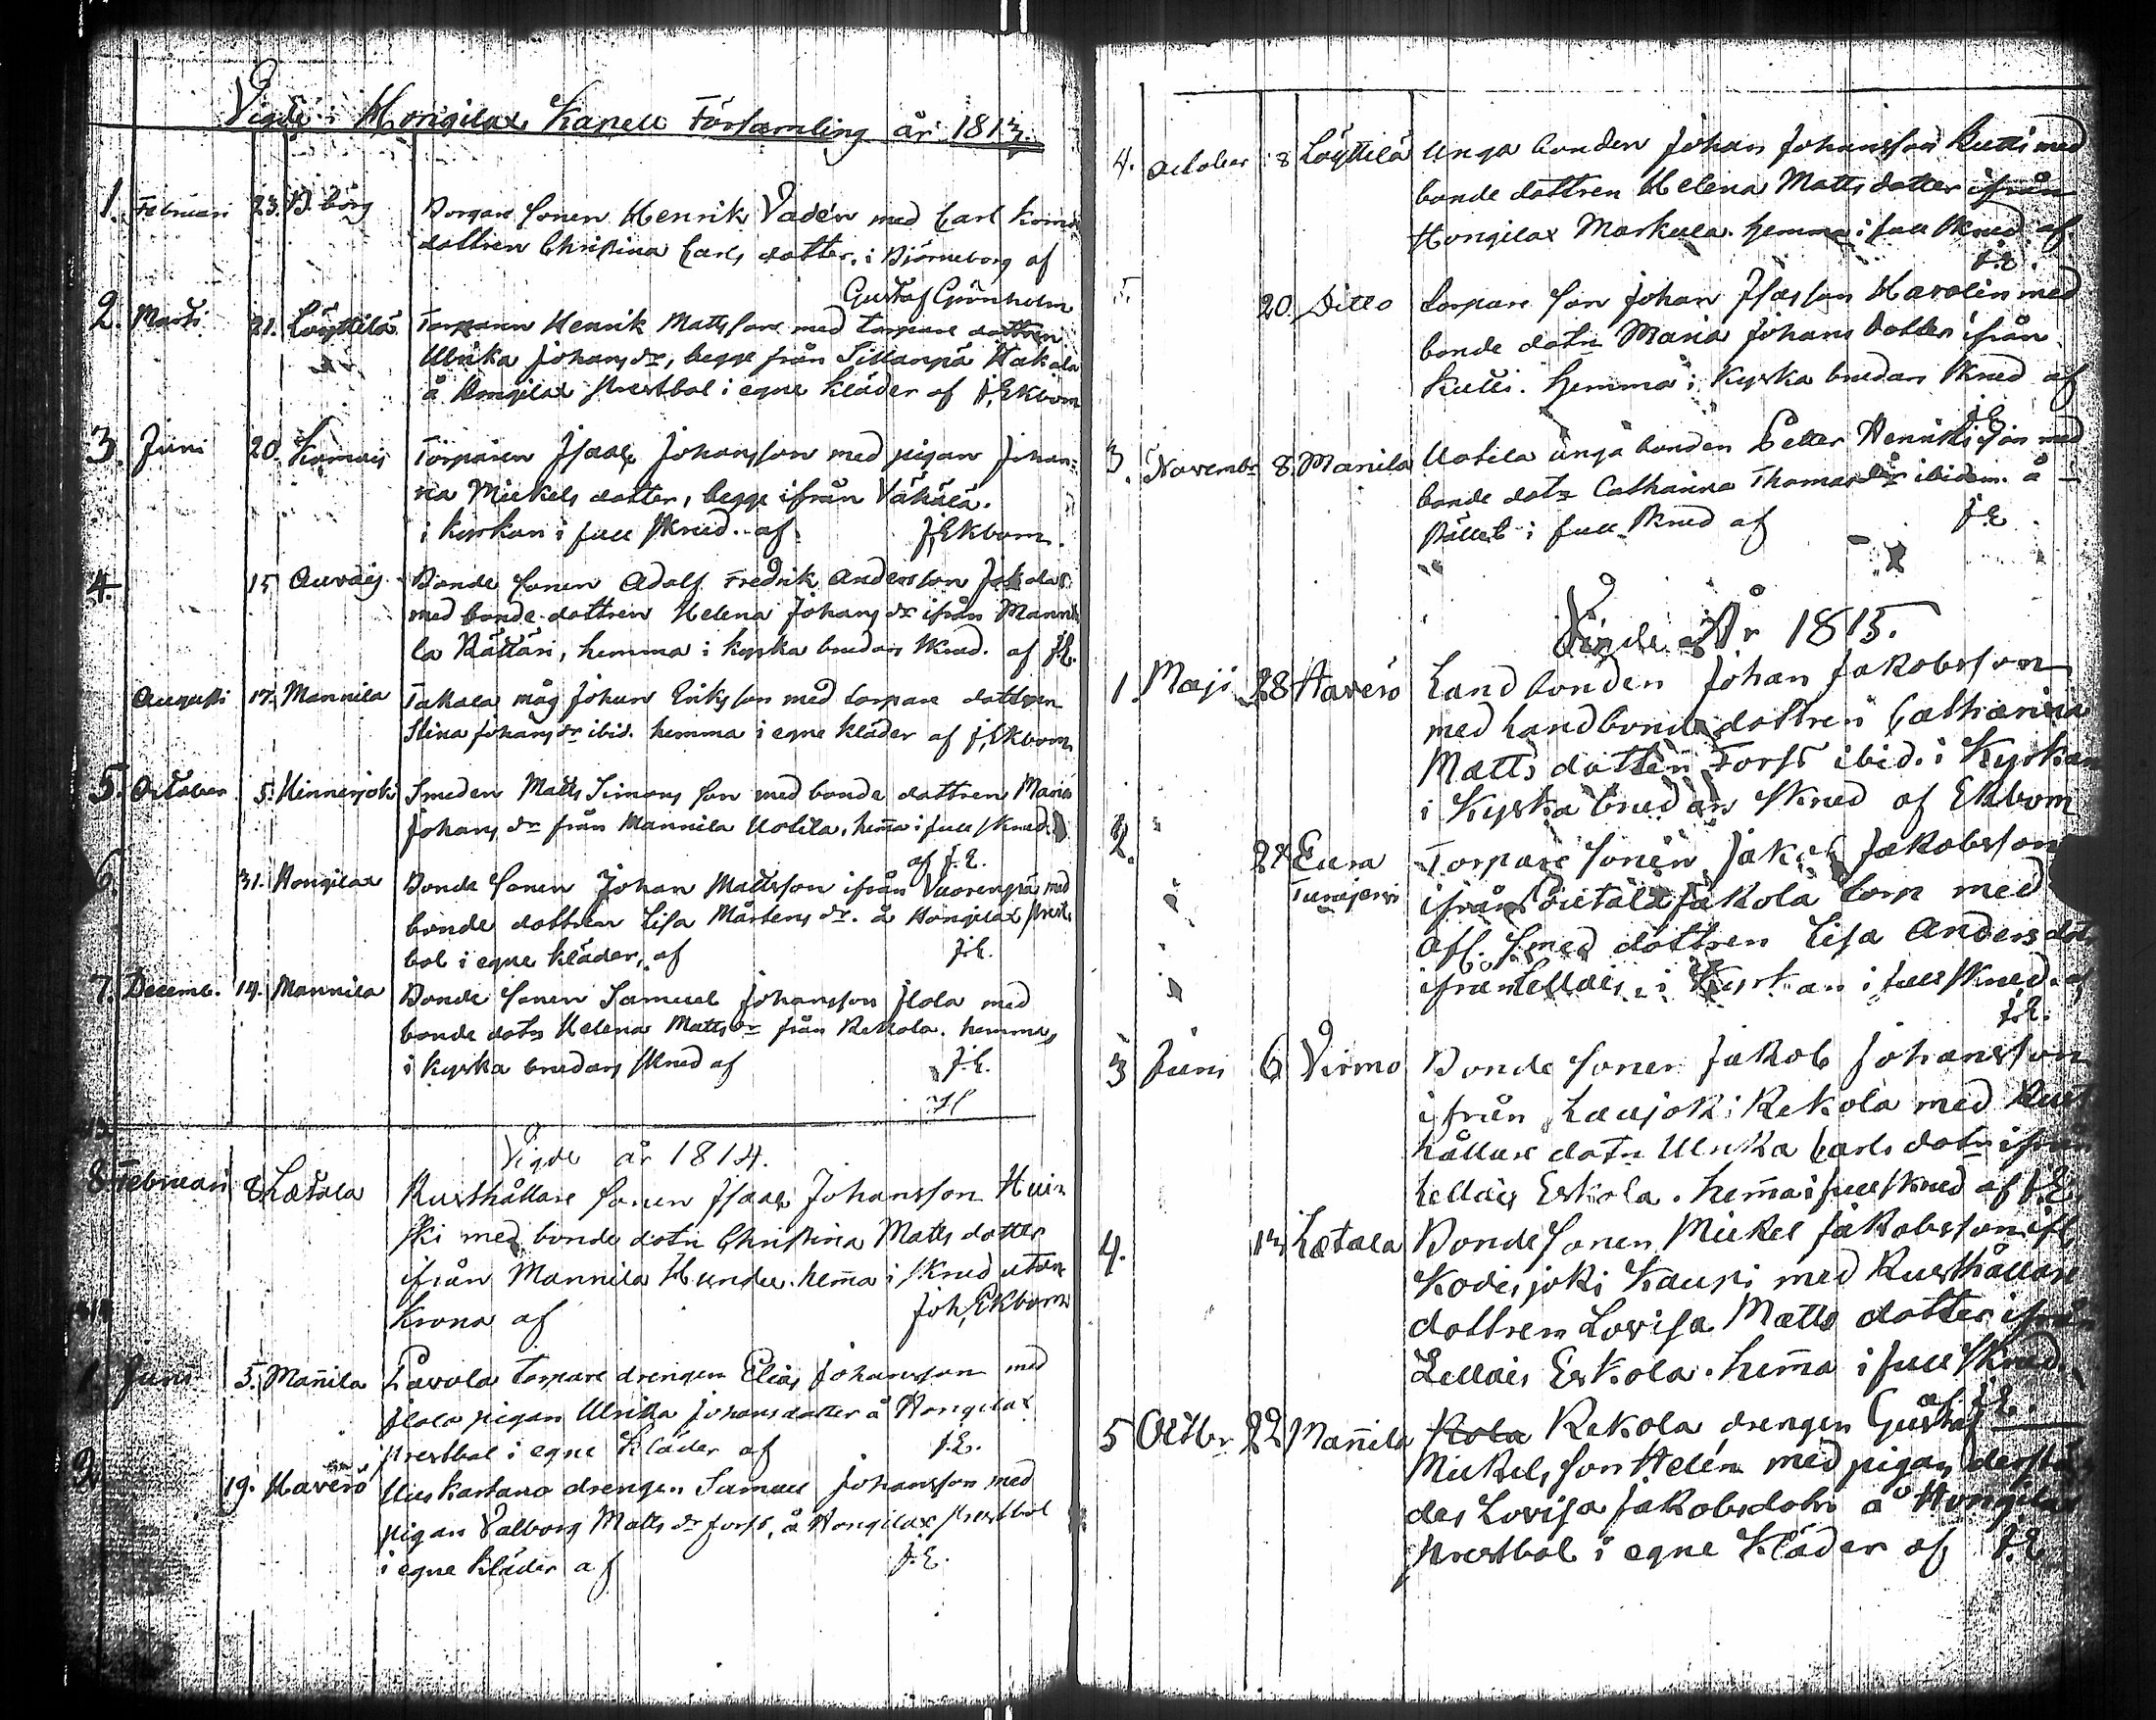 Vigde i Hongilax Kapell Församling år 1813.
1. Februari 23. B. borg Borgare sonen Henrik Vadén med Carl
dottren Christina Carls dotter, i Björneborg af
Gustaf Grönholm
2. Marti 21. Löyttilä Torparen Henrik Mattsson med torpare dottren
Ulrika Johans dr, begge från Sillanpä Hakala
å Hongilax prestbol i egne kläder af J. Ekbom
3. Juni 20. Torparen Isaac Johansson med pigan Johan=
na Mickels dotter, begge ifrån Vähälä.
i kyrkan i full skrud af J. Ekbom.
4. 15 Auvais Bonde sonen Adolf Fredrik Andersson Jakola
med bonde dottren Helena Johans dr ifrån Manni
la Rättäri, hemma i kyrka brudars skrud. af J.E.
Augusti 17. Mannila Takala måg Johan Eriksson med torpare dottren
Stina Johans dr ibid. hemma i egne kläder af J. Ekbom
5. October 5. Hinnerjoki Smeden Matts Simons son med bonde dottren Maria
Johans dr från Mannila Uotila, hema i full skrud.
af J.E.
6. 31. Hongilax Bonde sonen Johan Mattsson ifrån Vuorenpä med
bonde dottren Lisa Mårtens dr. å Hongilax prest
bol i egne kläder, af J.E.
7. Decemb. 14. Mannila Bonde sonen Samuel Johansson Ilola med
bonde dotn Helena Matts dr från Rekola. hemma
i kyrka brudars skrud af J.E.
Vigde år 1814.
8 Februari 8 Lætala Rusthållare sonen Isaac Johansson Hui
ski med bonde dotn Christina Matts dotter
ifrån Mannila Hundu. hema i skrud utan
krona af Joh. Ekbom
1. Juni 5. Manila Pavola torpare drengen Elias Johansson med
Ilola pigan Ulrika Johans dotter å Hongilax
prestbol i egne kläder af J.E.
2 19. Haverö Uus kartano drengen Samuel Johansson med
pigan Valborg Matts dr Forss, å Hongilax prestbol
i egne kläder af J.E.
4. October 8 Löyttilä Unga bonden Johan Johansson Kutti med
bonde dottren Helena Matts dotter ifrån
Hongilax Markula. hemma i full skrud af
J.E.
5. 20 Ditto torpare son Johan Isacsson Harolin med
bonde dotn Maria Johans dotter ifrån
Kutti. hemma i kyrka brudars skrud af
J.E.
3. Novembr 8. Manila Uotila unga bonden Petter Henriksson med
bonde dotr Catharina Thomas dr ibidem. å
stället i full skrud af J.E.
Vigde År 1815.
1. Maji 28 Haverö Landbonden Johan Jakobsson
med landbonde dottren Catharina
Matts dotter Forss ibid. i Kyrkan
i Kyrka brudars skrud af Ekbom
2. 28 Eura Torpare sonen Jakob Jakobsson
Turajervi ifrån Jakola torp med
afl. smed dottren Lisa Anders dot
ifrån Lellais, i Kyrkan i full skrud. af
J.E.
3 Juni 6 Virmo Bonde sonen Jakob Johansson
ifrån Laujoki Rekola med Rust
hållare dotn Ulrika Carls dotn ifrån
Lellais Eskola. hema i full skrud af J.E.
4. 13 Lætala Bonde sonen Mickel Jakobsson ifr
Kodisjoki Kauppi med Rusthållare
dottren Lovisa Matts dotter ifrån
Lellais Eskola. hema i full skrud.
af J.E.
5 Octbr 22 Manila Rekola drengen Gustaf
Mickelsson Helén med pigan derstä
des Lovisa Jakobsdotr å Hongilax
prestbol i egne Kläder af J.E.